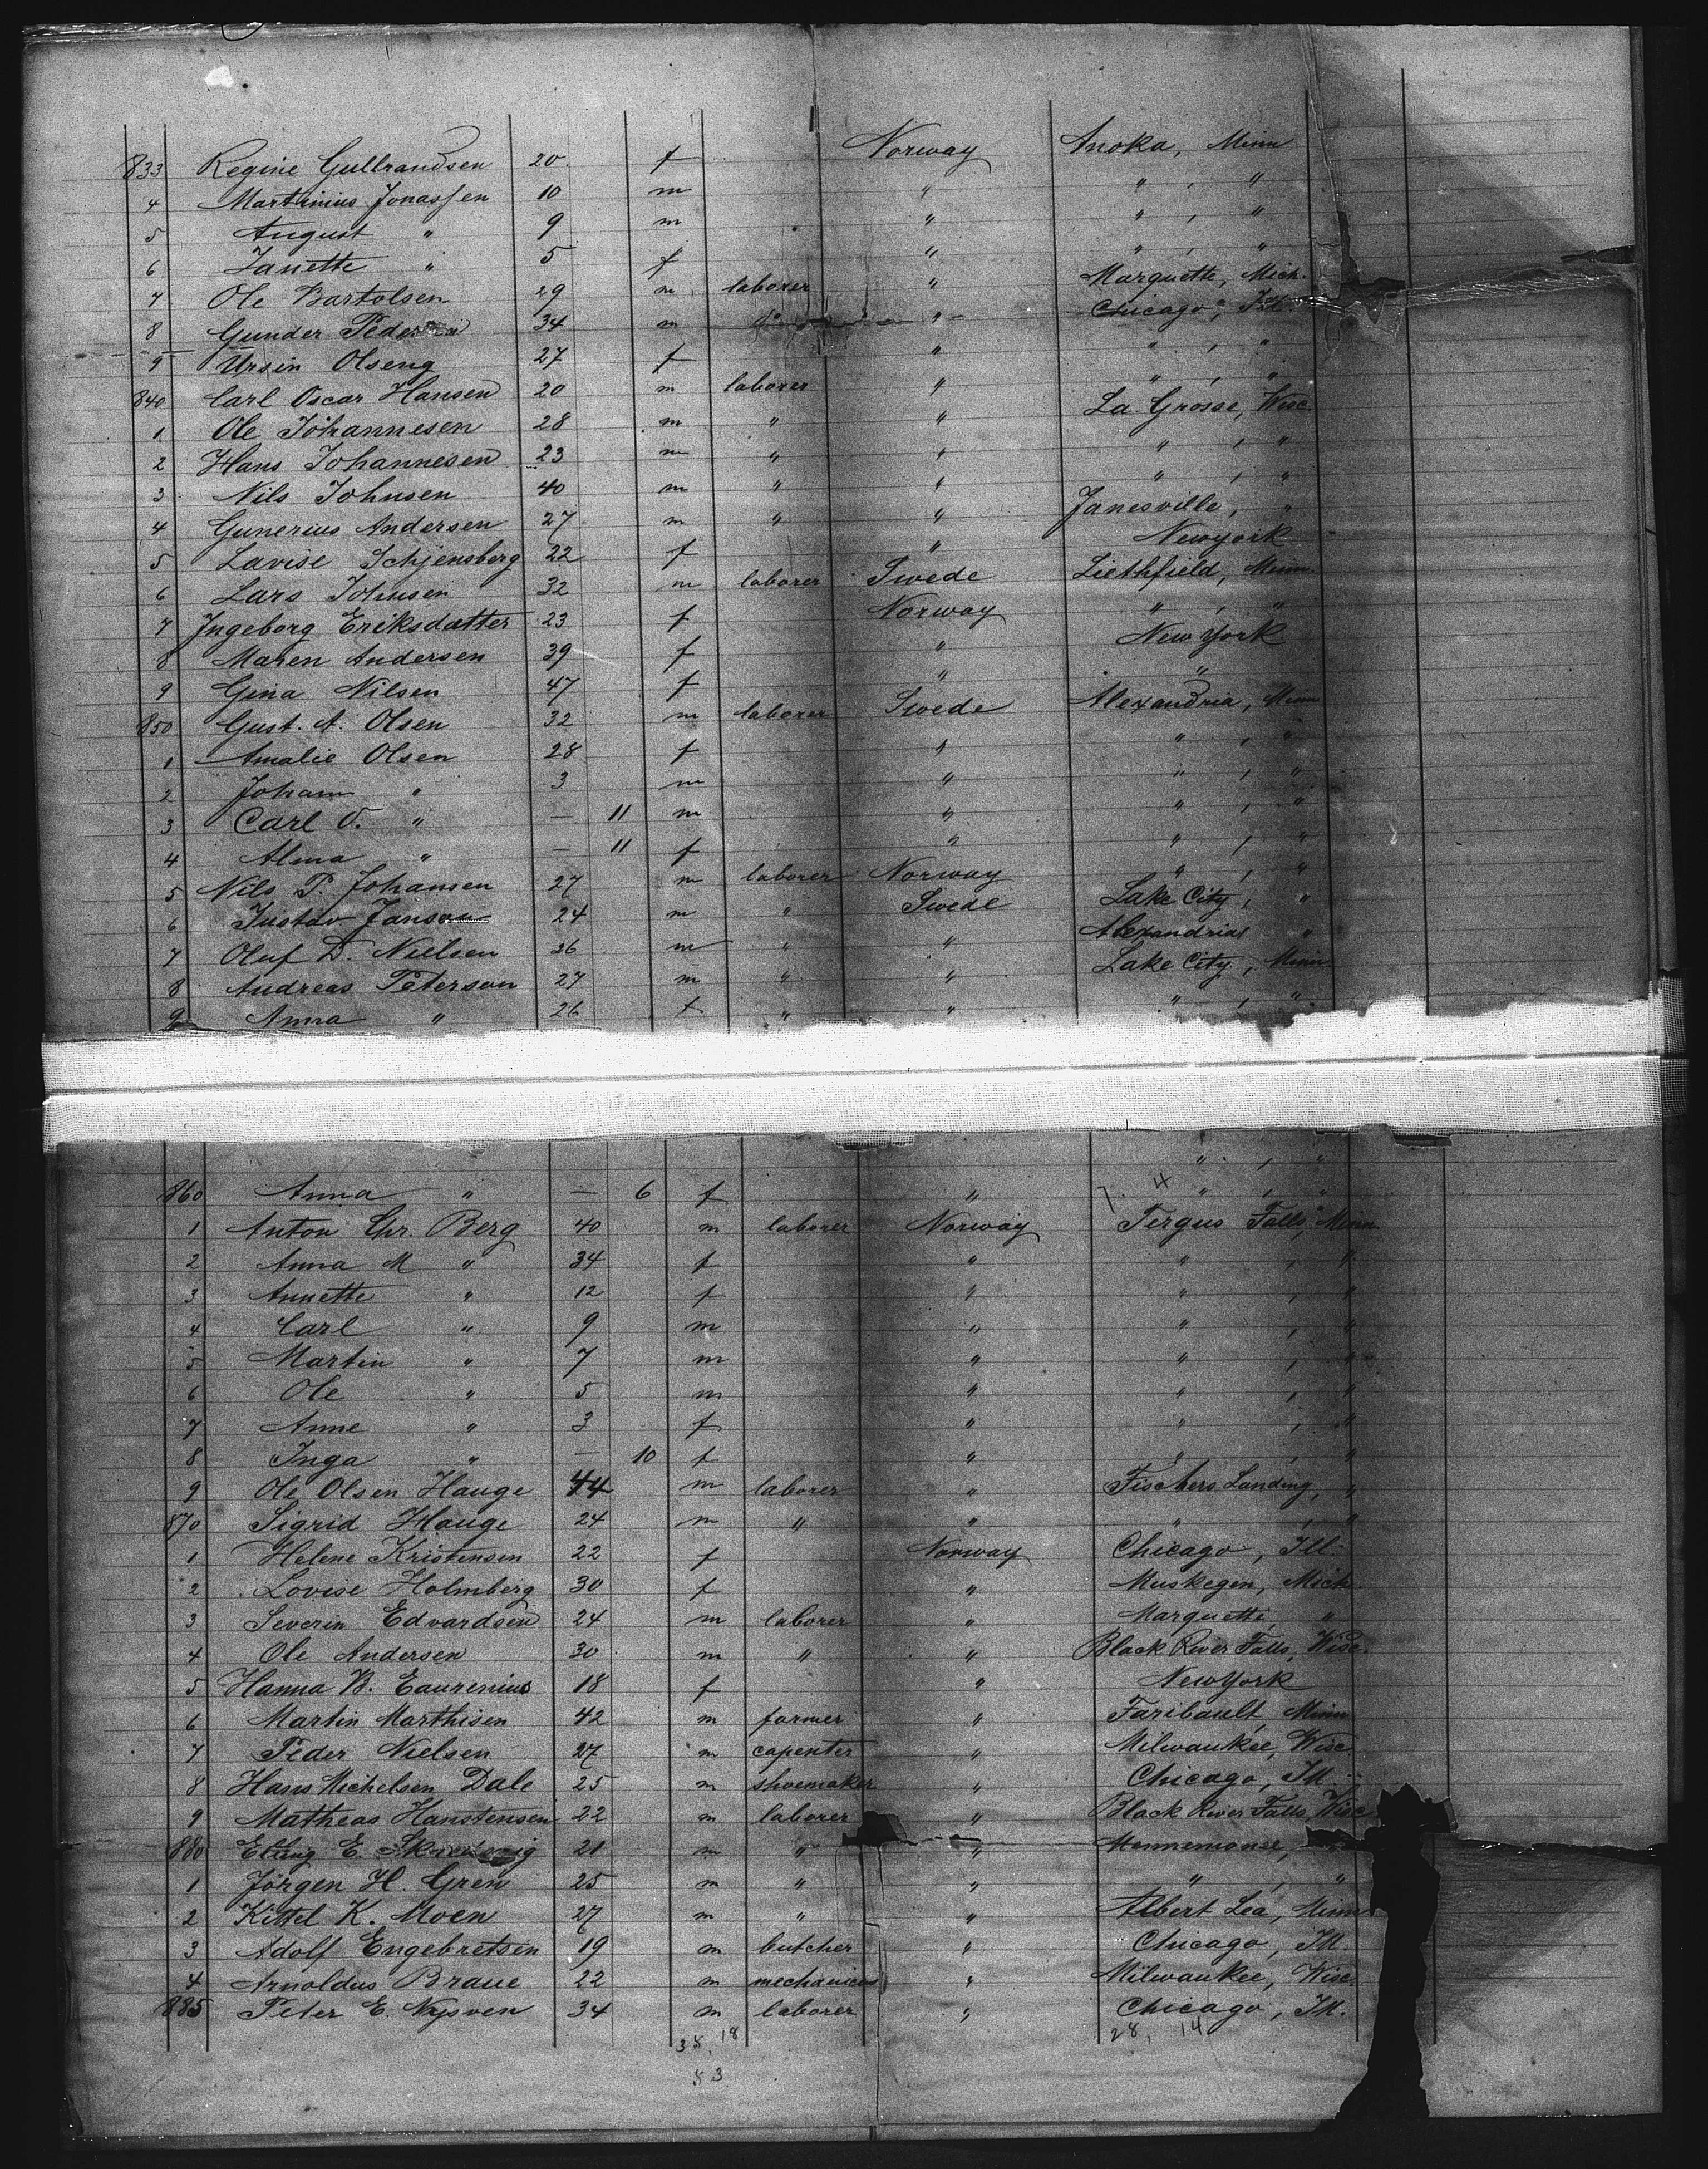 833 Regine Gulbrandsen 20 f Norway Anoka, Minn
4 Martinius Jonassen 10 m " " , "
5 August " 9 m " " , "
6 Janette " 5 f " " , "
7 Ole Bartolsen 29 m laborer " Marquette, Mich.
8 Gunder Pedersen 34 m " Chicago, Ill.
9 Ursin Olseng 27 f " " , "
840 Carl Oscar Hansen 20 m laborer " " , "
1 Ole Johannesen 28 m " " La Grosse, Wisc.
2 Hans Johannesen 23 m " " " , "
3 Nils Johnsen 40 m " " " , "
4 Gunerius Andersen 27 m " " Janesville, "
5 Lavise Schjensberg 22 f " Newyork
6 Lars Johnsen 32 m laborer Swede Liethfield, Minn.
7 Ingeborg Eriksdatter 23 f Norway " , "
8 Maren Andersen 39 f " New York
9 Gina Nilsen 47 f " "
850 Gust. A. Olsen 32 m laborer Swede Alexandria, Minn
1 Amalie Olsen 28 f " " , "
2 Johan " 3 m " " , "
3 Carl O. " — 11 m " " , "
4 Alma " — 11 f " " , "
5 Nils P. Johansen 27 m laborer Norway " , "
6 Gustav Janson 24 m " Swede Lake City, "
7 Oluf D. Nielsen 26 m " " Alexandria, "
8 Andreas Peterson 27 m " " Lake City, Minn
9 Anna " 26 f " " " , "
" , "
860 Anna " — 6 f " 7. 4 " , "
1 Anton Chr. Berg 40 m laborer Norway Fergus Falls, Minn.
2 Anna M " 34 f " " , "
3 Annette " 12 f " " , "
4 Carl " 9 m " " , "
5 Martin " 7 m " " , "
6 Ole " 5 m " " , "
7 Anne " 3 f " " , "
8 Inga " — 10 f " " , "
9 Ole Olsen Hauge 44 m laborer " Fischers Landing, "
870 Sigrid Hauge 24 m " " " , "
1 Helene Kristensen 22 f Norway Chicago, Ill.
2 Lovise Holmberg 30 f " Muskegen, Mich.
3 Severin Edvardsen 24 m laborer " Marquette, "
4 Ole Andersen 30 m " " Black River Falls, Wisc.
5 Hanna B. Eaurenius 18 f " NewYork
6 Martin Marthisen 42 m farmer " Faribault, Minn
7 Peder Nielsen 27 m capenter " Milwaukee, Wisc
8 Hans Michelsen Dale 25 m shoemaker " Chicago, Ill.
9 Matheas Hanstensen 22 m laborer " Black River Falls, Wisc
880 Elling E. 21 m " " Mennemonee,
1 Jörgen H. Gren 25 m " " " , "
2 Kittel K. Moen 27 m " " Albert Lea, Minn
3 Adolf Engebretsen 19 m butcher " Chicago, Ill.
4 Arnoldus Braue 22 m mechanicus " Milwaukee, Wisc
885 Peter E. Nysven 34 m laborer " Chicago, Ill.
35, 18 28, 14
53